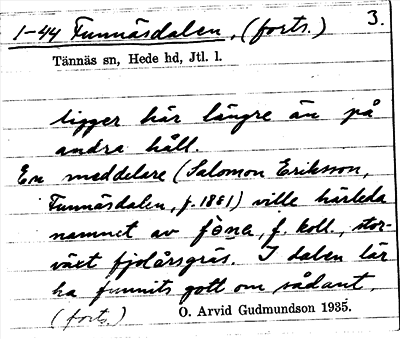 1-44 Funnäsdalen, (forts.) 3.
Tännäs sn, Hede hd, Jtl. l.
ligger här längre än på
andra håll.
En meddelare (Salomon Eriksson,
Funnäsdalen, f. 1881) ville härleda
namnet av fòna, f. koll., stor-
växt fjolårsgräs. I dalen lär
ha funnits gott om sådant.
(forts.) O. Arvid Gudmundson 1935.